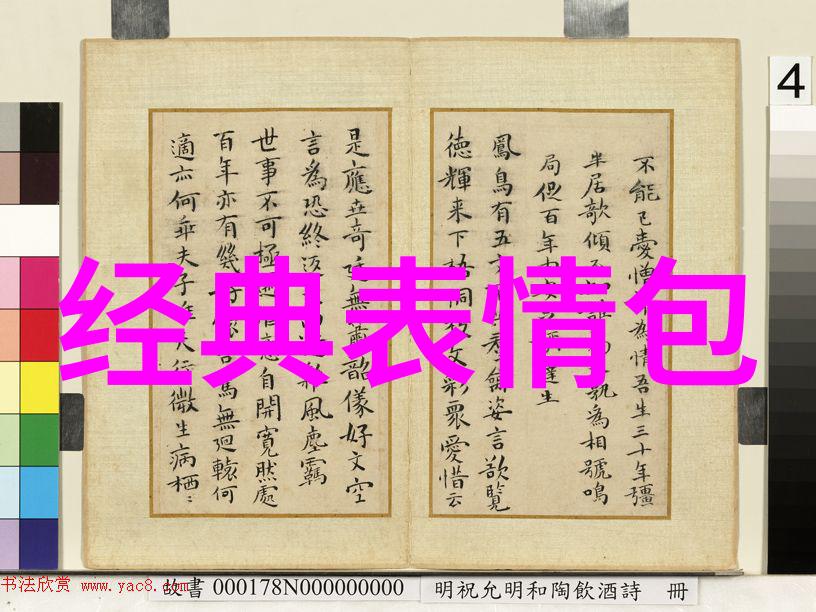 不能已憂憎為情吾生三十年彊
半居欹傾為相號鳴
局促百年達生
鳳鳥有五姿言欲覽
徳輝来下梧桐眾愛惜云
是應奇無韶儀好文空
言為恐終風塵羈
世事不可極自開寛然處
百年亦有幾馬無迴轅何
適亦何乖夫子微生病栖〻
经典表情包
4
书法欣赏 www.yac8.com
故書 000178N000000000 明祝允明和陶飲酒詩 冊